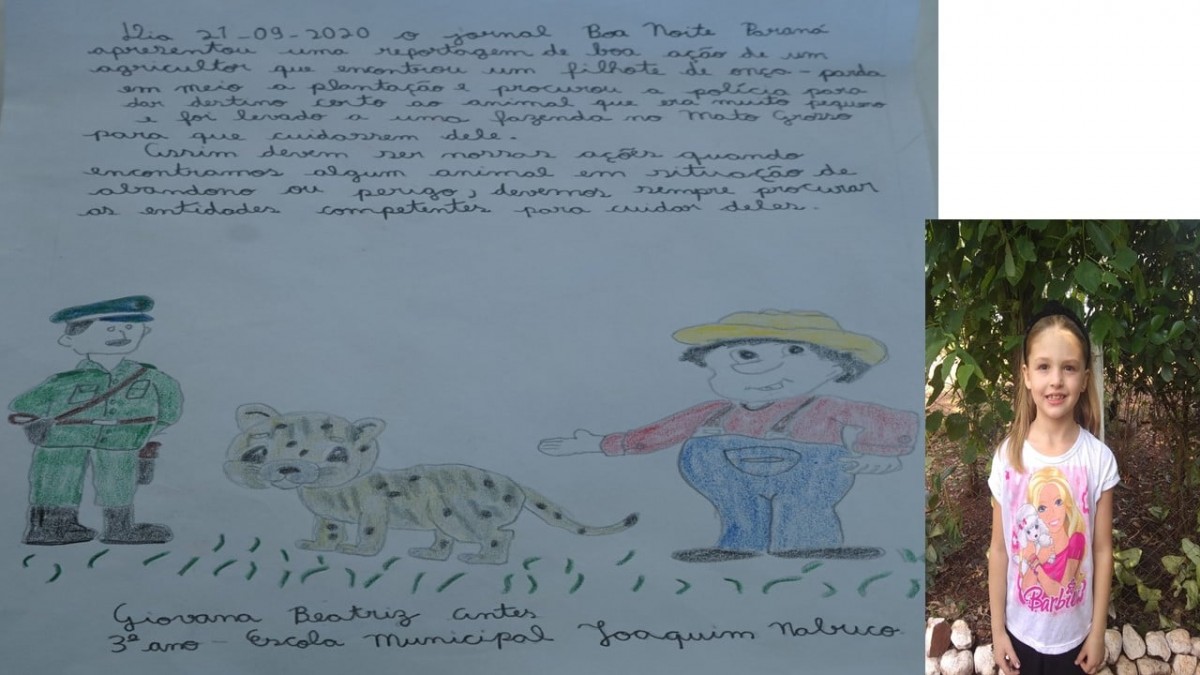 Dia 21-09-2020 o jornal Boa Noite Paraná
apresentou uma reportagem de boa ação de um
agricultor que encontrou um filhote de onça-parda
em meio a plantação e procurou a polícia para
dar destino certo ao animal que era muito pequeno
e foi levado a uma fazenda no Mato Grosso
para que cuidassem dele.
Assim devem ser nossas ações quando
encontramos algum animal em situação de
abandono ou perigo, devemos sempre procurar
as entidades competentes para cuidar deles.
Giovana Beatriz Antes
3º ano - Escola Municipal Joaquim Nabuco.
Barbie